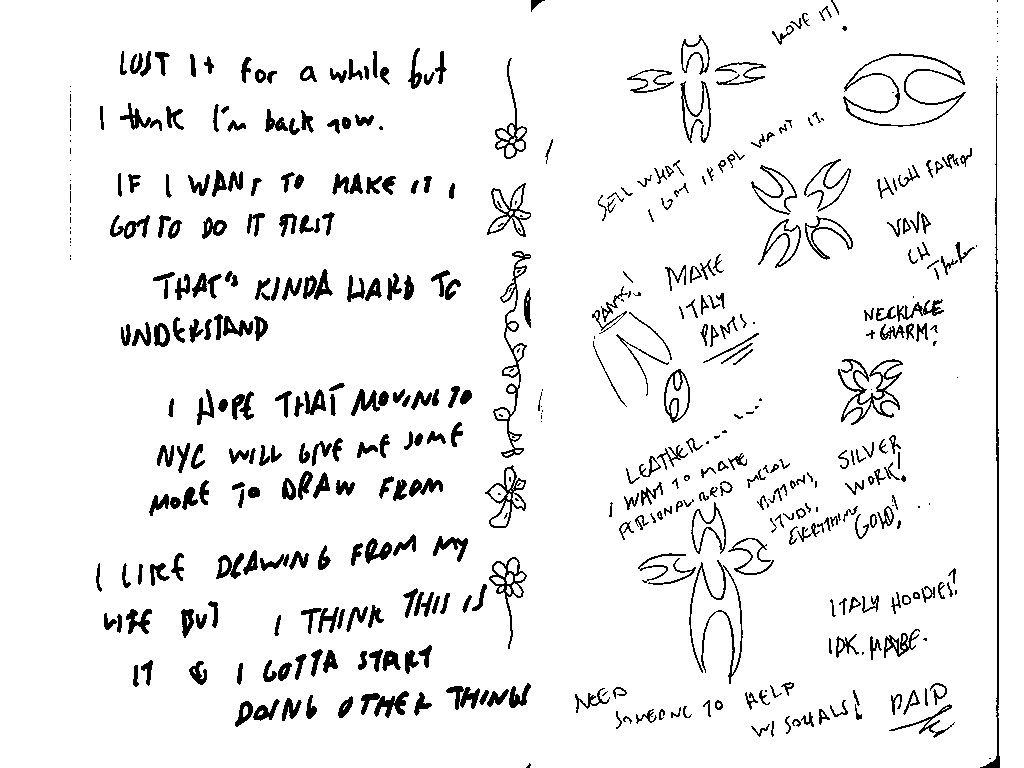 LOST It for a while but
I think I'm back now.
IF I WANT TO MAKE IT I
GOT TO DO IT FIRST
THAT'S KINDA HARD TO
UNDERSTAND
I HOPE THAT MOVING TO
NYC WILL GIVE ME SOME
MORE TO DRAW FROM
I LIKE DRAWING FROM MY
LIFE BUT I THINK THIS IS
IT & I GOTTA START
DOING OTHER THINGS
LOVE IT!
SELL WHAT
I GOT IF PPL WANT IT.
HIGH FASHION
VAVA
CH
PANTS!
MAKE
ITALY
PANTS.
NECKLACE
+ CHARM?
LEATHER.......
I WANT TO MAKE
PERSONALIZED METAL
BUTTONS,
STUDS,
EVERYTHING
SILVER
WORK!
GOLD! ...
ITALY HOODIES?
IDK. MAYBE.
NEED
SOMEONE TO HELP
W/ SOCIALS! PAID